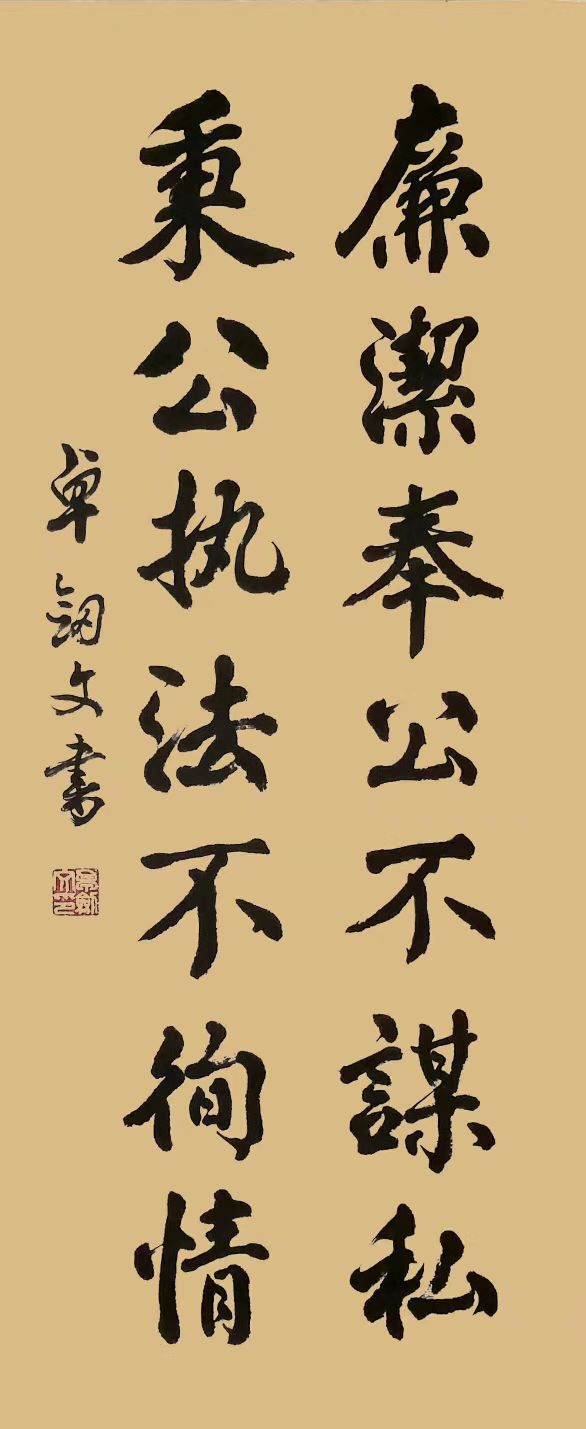 廉潔奉公不謀私
秉公执法不徇情
卓劔文書